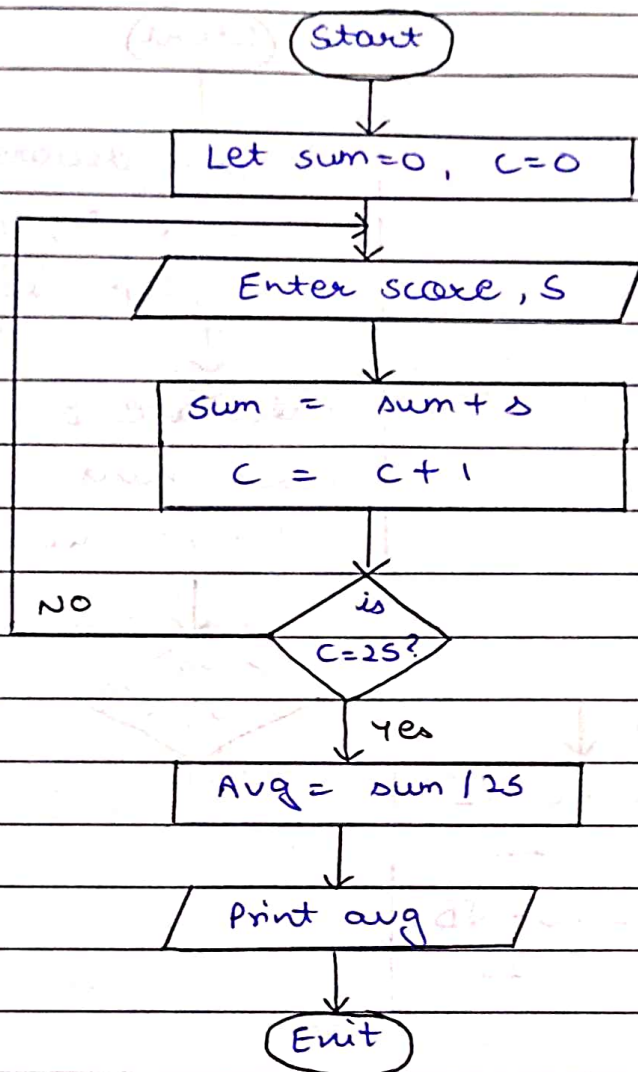 Start
Let sum=0, c=0
Enter score, S
sum = sum + s
c = c + 1
NO
is
C=25?
Yes
Avg = sum / 25
Print avg
Exit